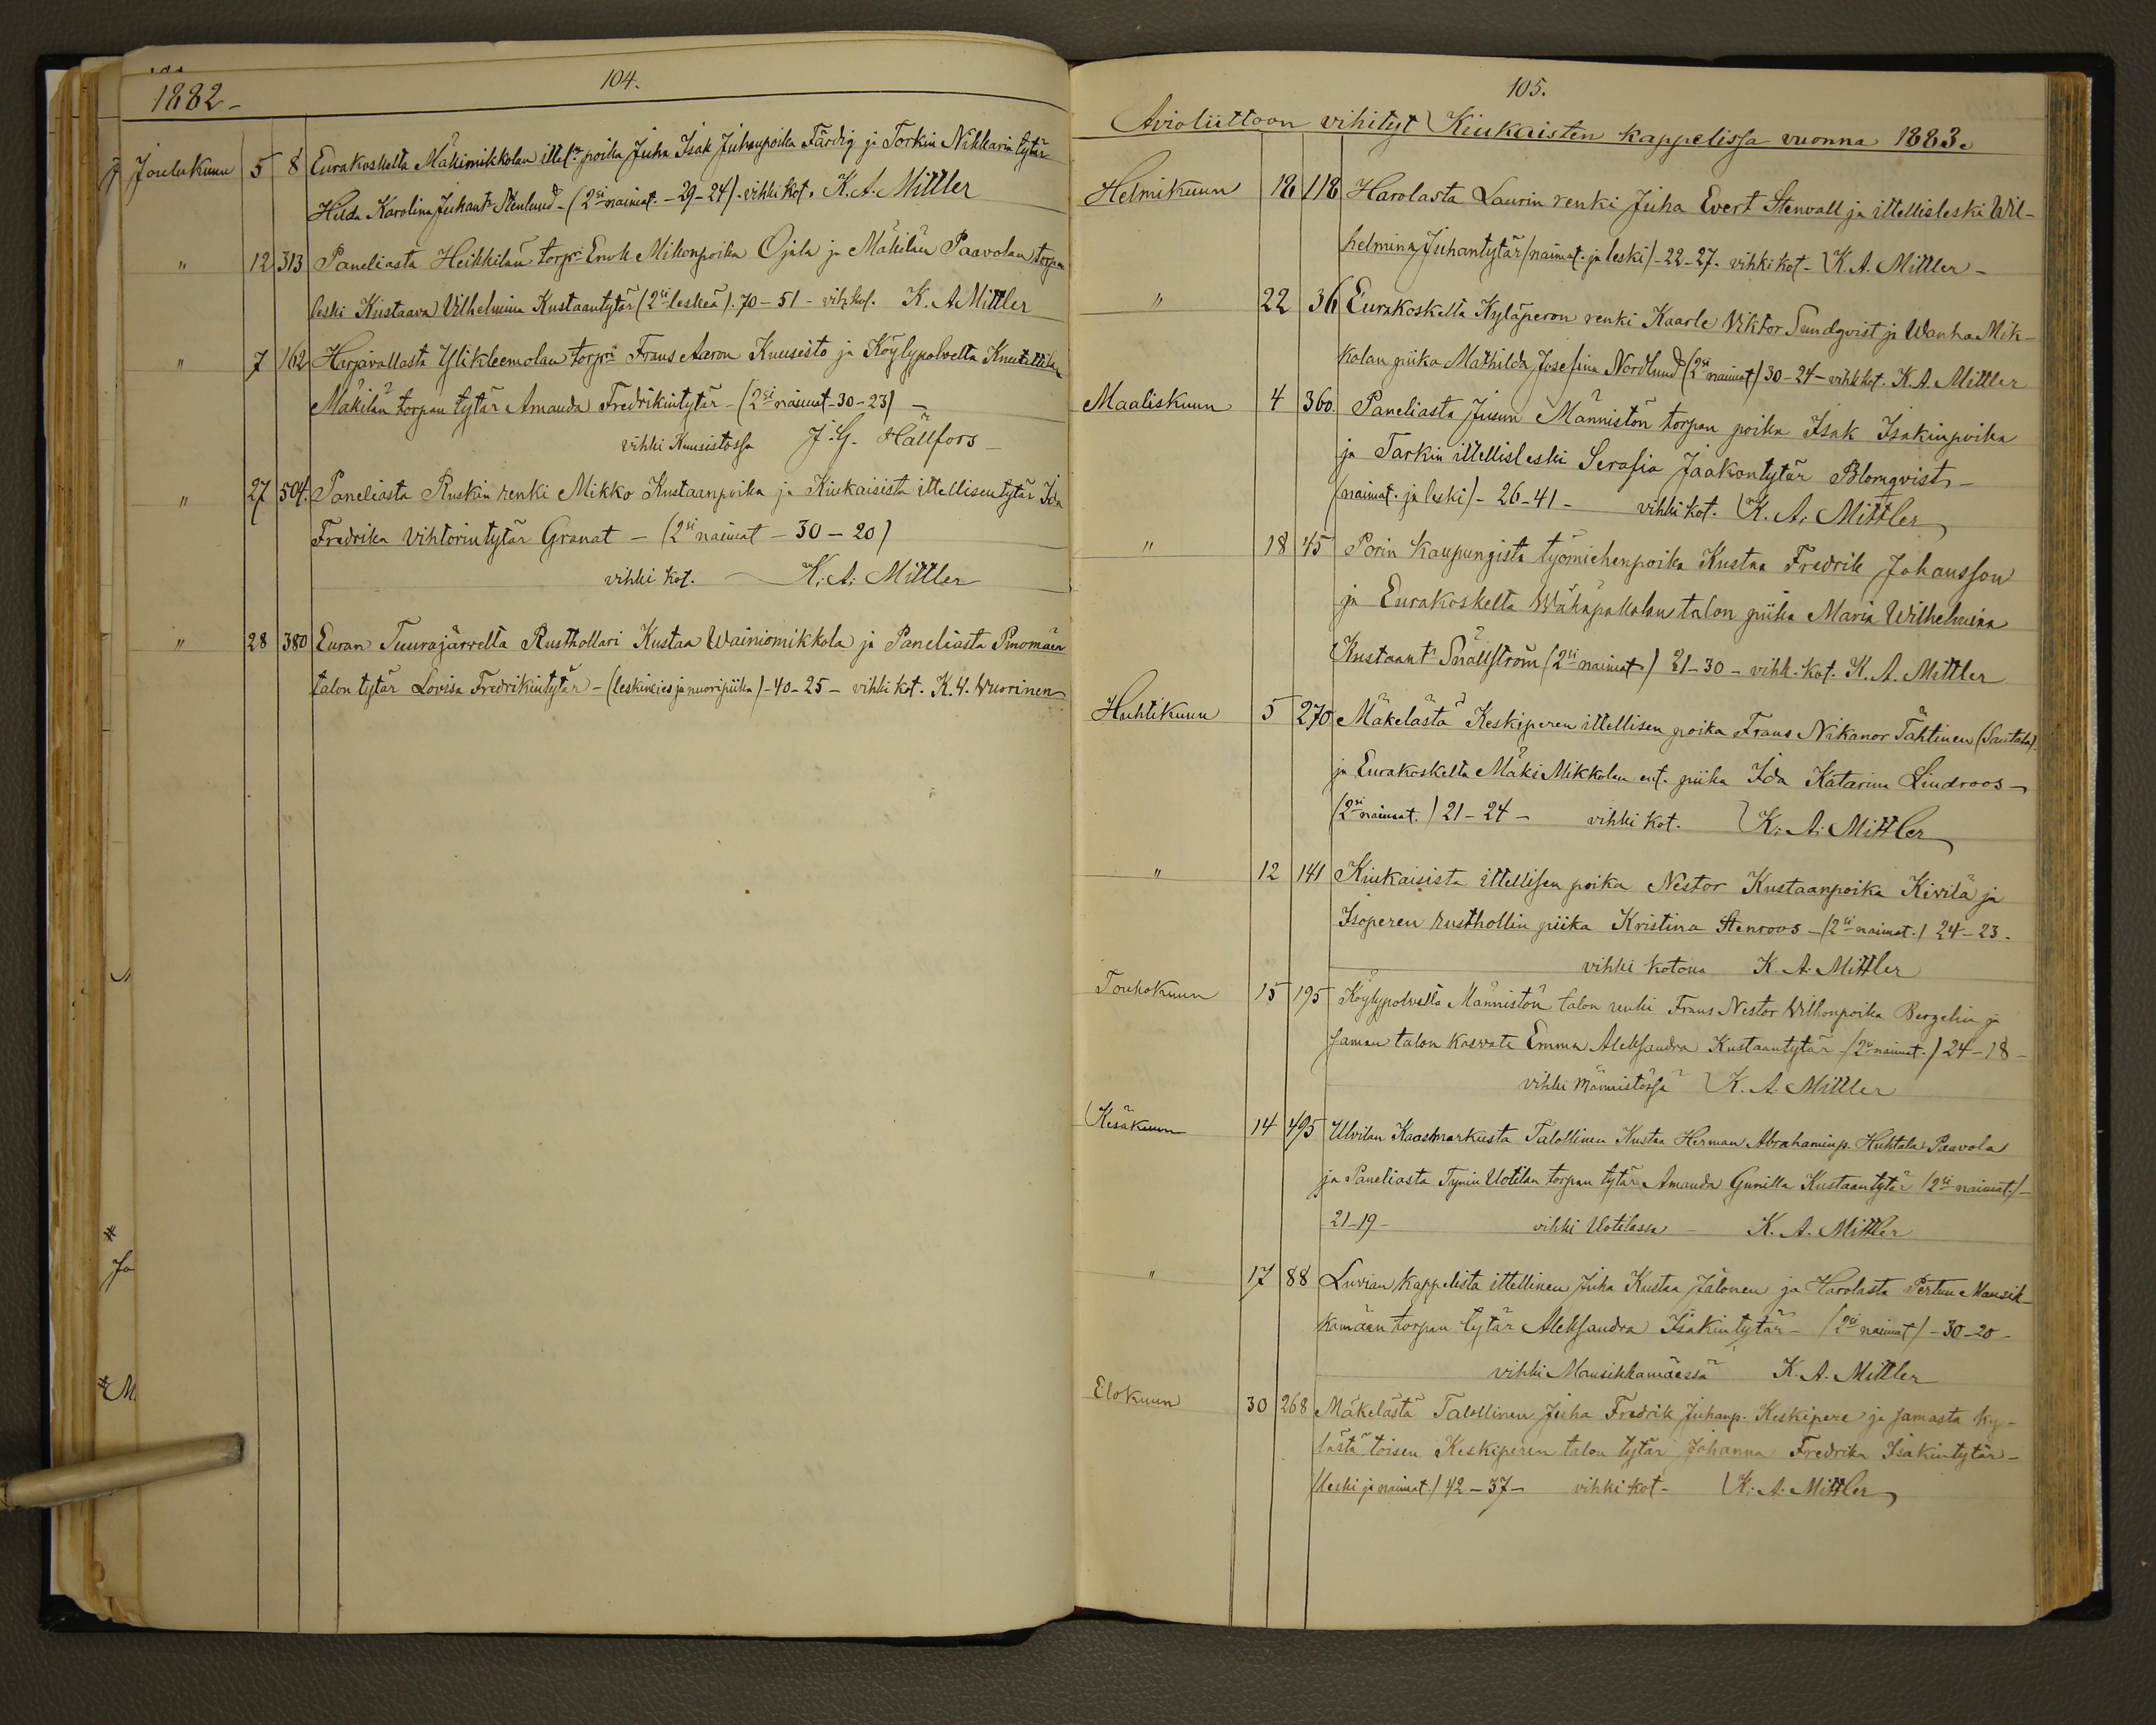 104.
1882-
Joulukuun 5 8 Eurakoskelta Mäkimikkolan ittel. poika Juha Isak Juhanpoika Färdig ja Torkin Nikkarin tytär
Hilda Karolina Juhant. Stenlund - (2si naimat. - 29-24). vihki kot. K. A. Mittler
" 12 313 Paneliasta Heikkilän torp. Enok Mikonpoika Ojala ja Mäkilän Paavolan torpan
leski Kustaava Vilhelmina Kustaantytär (2si leskeä). 70-51 - vihk. kot. K. A Mittler
" 7 162 Harjavallasta Ylikleemolan torpri Frans Aaron Kuusisto ja Köylypolvelta Knuuttilan
Mäkilän torpan tytär Amanda Fredrikintytär - (2si naimat - 30-23) -
vihki Kuusistossa J. G. Hällfors -
" 27 504. Paneliasta Ruskin renki Mikko Kustaanpoika ja Kiukaisista ittellisen tytär Ida
Fredrika Vihtorintytär Granat - (2si naimat - 30-20)
vihki kot. - K. A. Mittler
" 28 380 Euran Tuurajärvelta Rusthollari Kustaa Wainiomikkola ja Paneliasta Pinomäen
talon tytär Lovisa Fredrikintytär - (leskimies ja nuoripiika) - 40-25 - vihki kot. K. V. Wuorinen
105.
Avioliittoon vihityt Kiukaisten kappelissa vuonna 1883.
Helmikuun 18 118 Harolasta Laurin renki Juha Evert Stenvall ja ittellisleski Wil-
helmina Juhantytär (naimat. ja leski) - 22-27. vihki kot - K. A. Mittler -
" 22 36 Eurakoskelta Kyläperon renki Kaarle Viktor Sundqvist ja Wanha Mik-
kolan piika Mathilda Josefina Nordlund (2si naimat) 30-24 - vihk kot. K. A. Mittler
Maaliskuun 4 360. Paneliasta Jusun Männistön torpan poika Isak Isakinpoika
ja Tarkin ittellisleski Serafia Jaakontytär Blomqvist -
(naimat. ja leski) - 26-41 - vihki kot. K. A. Mittler
" 18 45 Porin kaupungista työmiehenpoika Kustaa Fredrik Johansson
ja Eurakoskelta Wähäpakalan talon piika Maria Wilhelmina
Kustaant. Snällström (2si naimat) 21-30 - vihk. kot. K. A. Mittler
Huhtikuun 5 270 Mäkelästä Keskiperen ittellisen poika Frans Nikanor Tähtinen (Santala).
ja Eurakoskelta Mäki Mikkolan ent. piika Ida Katarina Lindroos -
(2si naimat.) 21-24 - vihki kot. K. A. Mittler
" 12 141 Kiukaisista ittellisen poika Nestor Kustaanpoika Kivilä ja
Isoperen rusthollin piika Kristina Stenroos - (2si naimat.) 24-23.
vihki kotona K. A. Mittler
Toukokuun 15 195 Köylypolvelta Männistön talon renki Frans Nestor Wilhonpoika Bergelin ja
saman talon kasvate Emma Aleksandra Kustaantytär (2si naimat.) 24-18 -
vihki männistössä K. A. Mittler
Kesäkuun 14 495 Ulvilan Kaasmarkusta Talollinen Kustaa Herman Abrahaminp. Huhtala Paavola
ja Paneliasta Tynin Uotilan torpan tytär Amanda Gunilla Kustaantytär (2si naimat.) -
21-19 - vihki Uotilassa - K. A. Mittler
" 17 88 Luvian kappelista ittellinen Juha Kustaa Jalonen ja Harolasta Pertun Mansik-
kamäen torpan tytär Aleksandra Isakintytär - (2si naimat) - 30-20 -
vihki Mansikkamäessä K. A. Mittler
Elokuun 30 268 Mäkelästä Talollinen Juha Fredrik Juhanp. Keskipere ja samasta ky-
lästä toisen Keskiperen talon tytär Johanna Fredrika Isakintytär -
(leski ja naimat.) 42-37 - vihki kot - K. A. Mittler